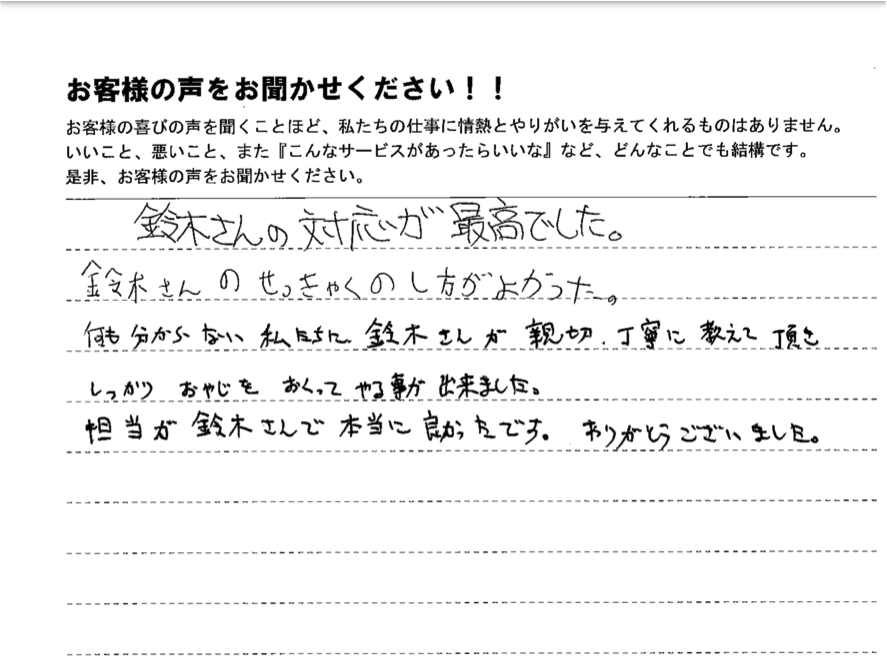 お客様の声をお聞かせください！！
お客様の喜びの声を聞くことほど、私たちの仕事に情熱とやりがいを与えてくれるものはありません。
いいこと、悪いこと、また『こんなサービスがあったらいいな』など、どんなことでも結構です。
是非、お客様の声をお聞かせください。
鈴木さんの対応が最高でした。
鈴木さんのせっきゃくのし方がよかった。
何も分からない私たちに、鈴木さんが親切、丁寧に教えて頂き
しっかりおやじをおくってやる事が出来ました。
担当が鈴木さんで本当に良かったです。ありがとうございました。